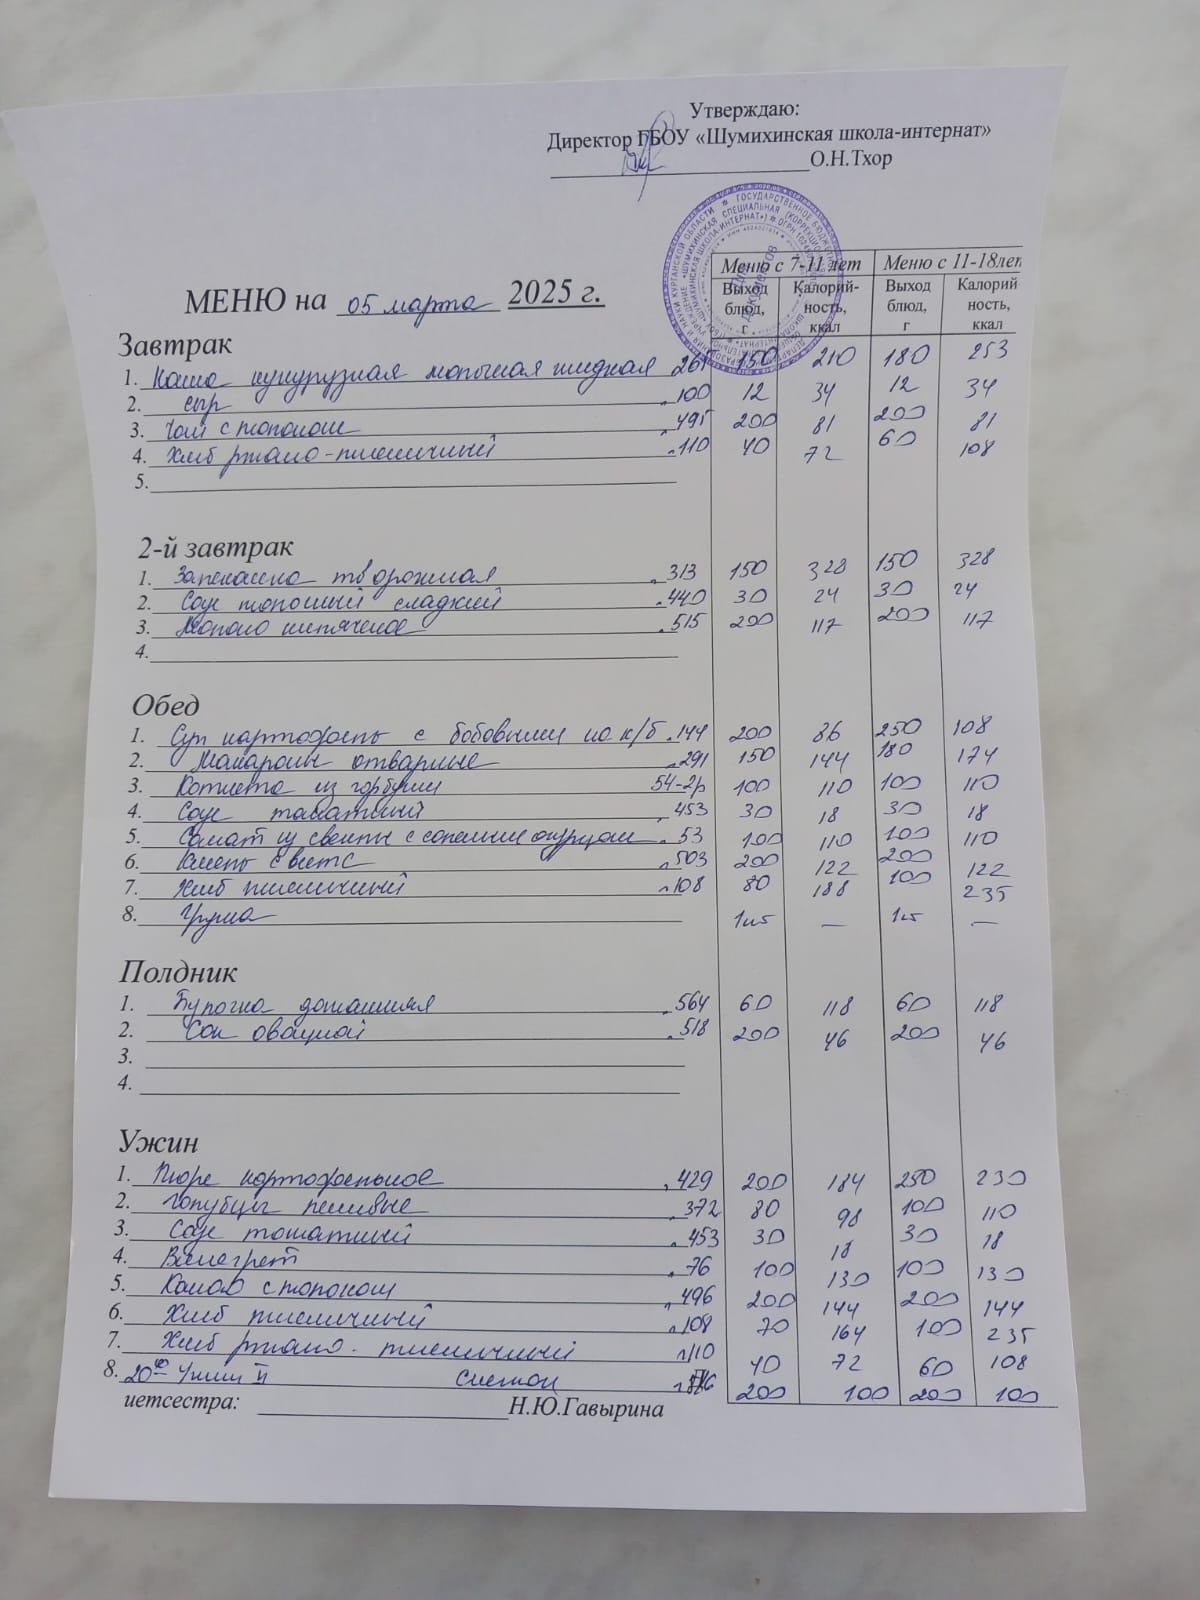 Утверждаю:
Директор ГБОУ «Шумихинская школа-интернат»
О.Н.Тхор
Меню с 7-11 лет Меню с 11-18лет
МЕНЮ на 05 марта 2025 г.
Выход блюд, г Калорий-ность, ккал Выход блюд, г Калорий ность, ккал
Завтрак
1. Каша кукурузная молочная жидкая 265 150 210 180 253
2. сыр 100 12 34 12 34
3. Чай с молоком 495 200 81 200 81
4. Хлеб ржано-пшеничный 110 40 72 60 108
5.
2-й завтрак
1. Запеканка творожная 313 150 328 150 328
2. Соус молочный сладкий 440 30 24 30 24
3. Молоко кипяченое 515 200 117 200 117
4.
Обед
1. Суп картофель с бобовыми на к/б 144 200 86 250 108
2. Макароны отварные 291 150 144 180 174
3. Котлета из горбуши 54-2р 100 110 100 110
4. Соус томатный 453 30 18 30 18
5. Салат из свеклы с солеными огурцами 53 100 110 100 110
6. Кисель с вит С 503 200 122 200 122
7. Хлеб пшеничный 108 80 188 100 235
8. Груша 1шт — 1шт —
Полдник
1. Булочка домашняя 564 60 118 60 118
2. Сок овощной 518 200 46 200 46
3.
4.
Ужин
1. Пюре картофельное 429 200 184 250 230
2. Голубцы ленивые 372 80 98 100 110
3. Соус томатный 453 30 18 30 18
4. Винегрет 76 100 130 100 130
5. Какао с молоком 496 200 144 200 144
6. Хлеб пшеничный 108 70 164 100 235
7. Хлеб ржано-пшеничный 110 40 72 60 108
8. 20⁰⁰ Ужин II 200 100 200 100
иетсестра: Н.Ю.Гавырина